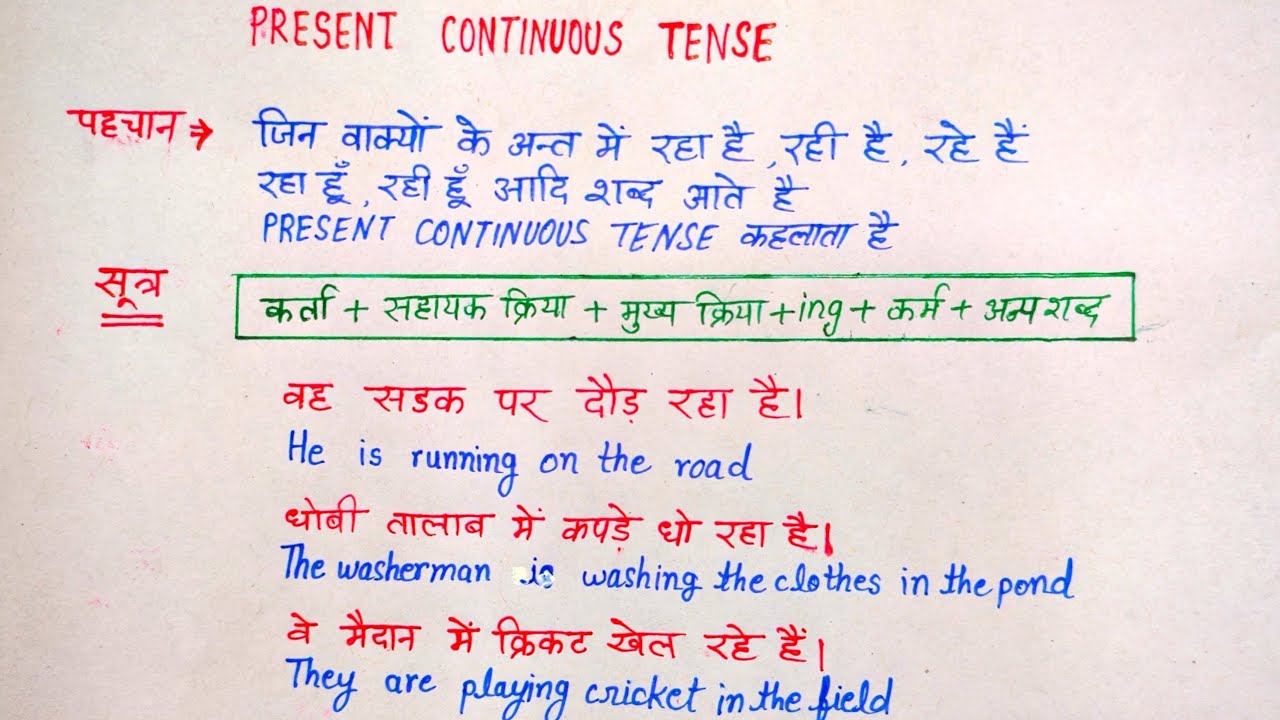 PRESENT CONTINUOUS TENSE
पहचान → जिन वाक्यों के अन्त में रहा है, रही है, रहे हैं
रहा हूँ, रही हूँ आदि शब्द आते है
PRESENT CONTINUOUS TENSE कहलाता है
सूत्र
कर्ता + सहायक क्रिया + मुख्य क्रिया + ing + कर्म + अन्य शब्द
वह सडक पर दौड़ रहा है।
He is running on the road
धोबी तालाब में कपड़े धो रहा है।
The washerman is washing the clothes in the pond
वे मैदान में क्रिकट खेल रहे हैं।
They are playing cricket in the field